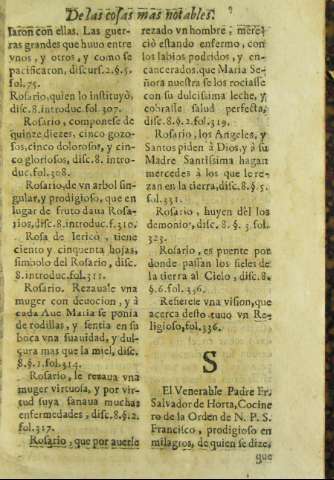 De las cosas mas notables.
saron con ellas. Las guer-
ras grandes que huuo entre
vnos, y otros, y como se
pacificaron, discurs. 2. §. 5.
fol. 75.
Rosario, quien lo instituyò,
disc. 8. introduc. fol. 307.
Rosario, componese de
quinze diezes, cinco gozo-
sos, cinco dolorosos, y cin-
co gloriosos, disc. 8. intro-
duc. fol. 308.
Rosario, de vn arbol sin-
gular, y prodigioso, que en
lugar de fruto daua Rosa-
rios, disc. 8. introduc. f. 310.
Rosa de Iericò, tiene
ciento y cinquenta hojas,
simbolo del Rosario, disc.
8. introduc. fol. 311.
Rosario. Rezauale vna
muger con deuocion, y à
cada Aue Maria se ponia
de rodillas, y sentia en su
boca vna suauidad, y dul-
çura mas que la miel, disc.
8. §. 1. fol. 314.
Rosario, le rezaua vna
muger virtuosa, y por vir-
tud suya sanaua muchas
enfermedades, disc. 8. §. 2.
fol. 317.
Rosario, que por auerle
rezado vn hombre, mere-
ciò estando enfermo, con
los labios podridos, y en-
cancerados, que Maria Se-
ñora nuestra se los rociasse
con su dulcissima leche, y
cobrasse salud perfecta,
disc. 8. §. 2. fol. 319.
Rosario, los Angeles, y
Santos piden à Dios, y à su
Madre Santissima hagan
mercedes à los que le re-
zan en la tierra, disc. 8. §. 5.
fol. 331.
Rosario, huyen del los
demonios, disc. 8. §. 3. fol.
323.
Rosario, es puente por
donde passan los fieles de
la tierra al Cielo, disc. 8.
§. 6. fol.
Refierese vna vision, que
acerca desto tuuo vn Re-
ligioso, fol. 336.
S
El Venerable Padre Fr.
Salvador de Horta, Cocine
ro de la Orden de N. P. S.
Francisco, prodigioso en
milagros, de quien se dize,
que